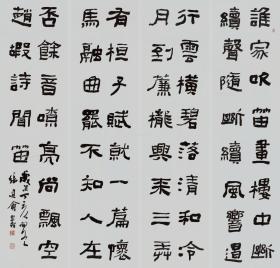 誰家吹笛畫樓中斷
續聲隨斷續風響遏
行雲橫碧落清和冷
月到簾櫳興來三弄
有桓子賦就一篇懷
馬融曲罷不知人在
否餘音嘹亮尚飄空
趙嘏詩聞笛